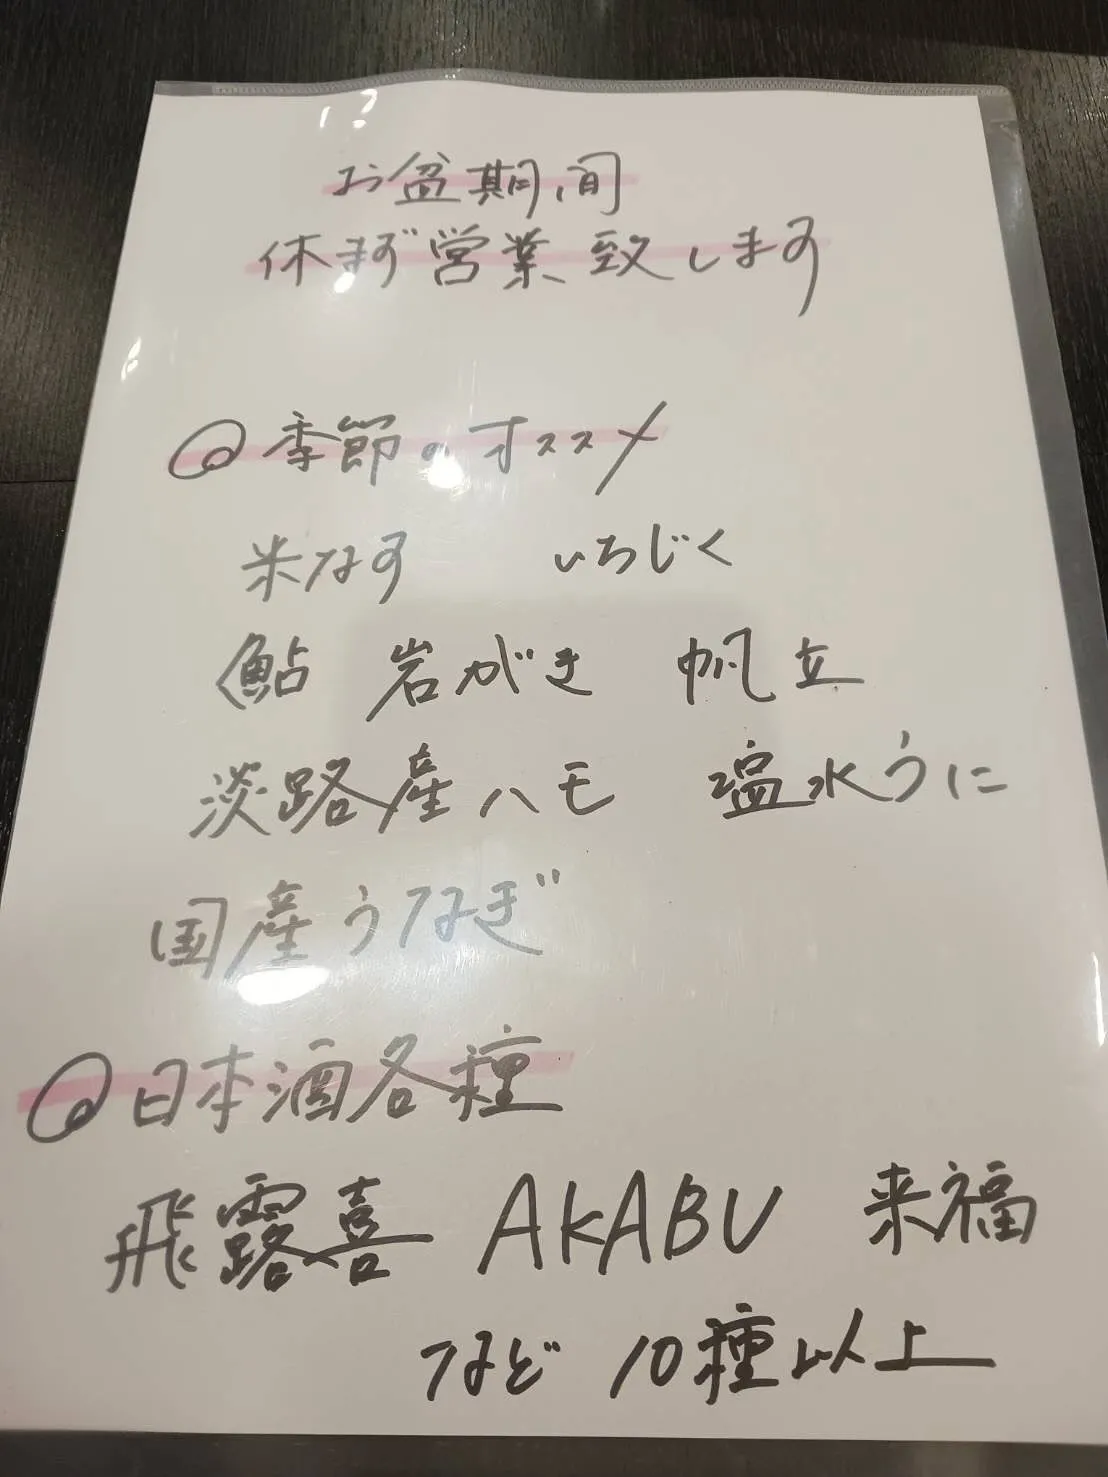 お盆期間
休まず営業致します
◎季節のオススメ
米なす いちじく
鮎 岩がき 帆立
淡路産ハモ 塩水うに
国産うなぎ
◎日本酒各種
飛露喜 AKABU 来福
など 10種以上